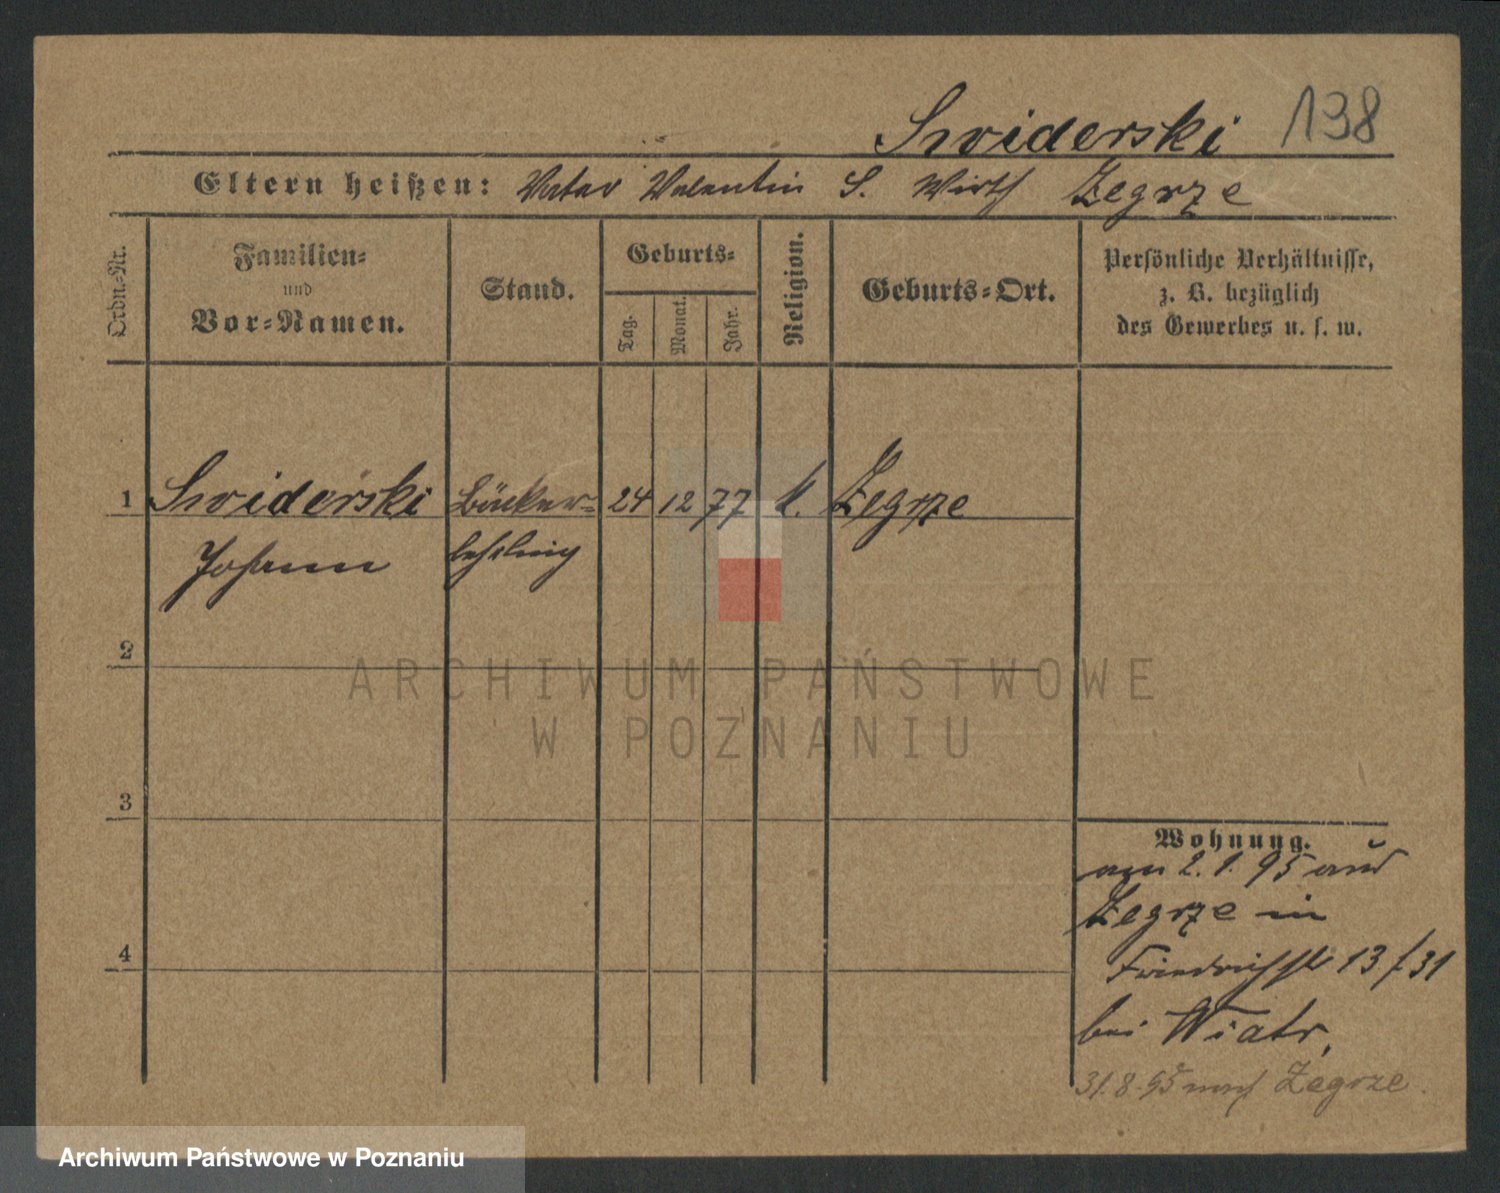 Swiderski 138
Eltern heißen: Vater Valentin S. Wirth Zegrze
Ordn.-Nr.
Familien-
und
Vor-Namen.
Stand.
Geburts-
Tag.
Monat.
Jahr.
Religion.
Geburts-Ort.
Persönliche Verhältnisse,
z. B. bezüglich
des Gewerbes u. s. w.
1 Swiderski Bäcker- 24 12 77 k. Zegrze
Johann lehrling
2
3
4
Wohnung.
am 2.1.95 aus
Zegrze in
Friedrichstr 13/31
bei Wiatr,
31.8.95 nach Zegrze.
ARCHIWUM PAŃSTWOWE
W POZNANIU
Archiwum Państwowe w Poznaniu